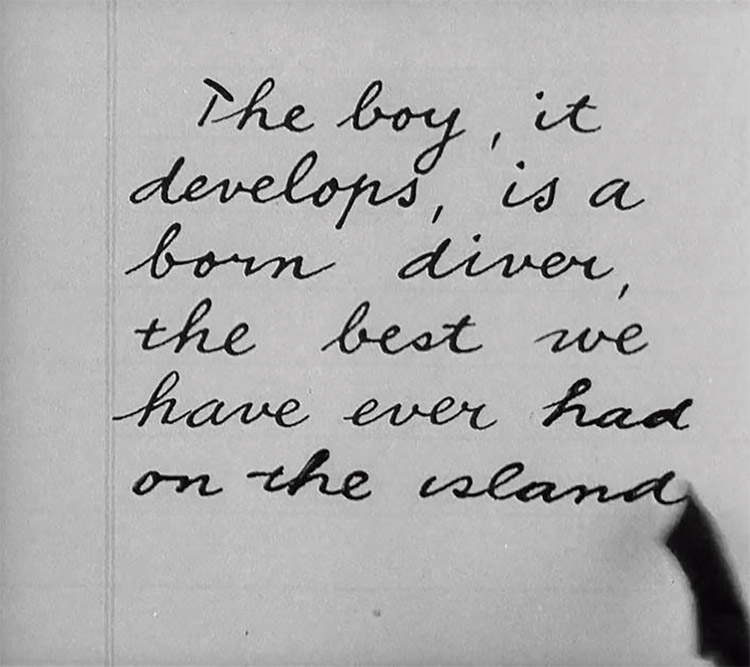 The boy, it
develops, is a
born diver,
the best we
have ever had
on the island